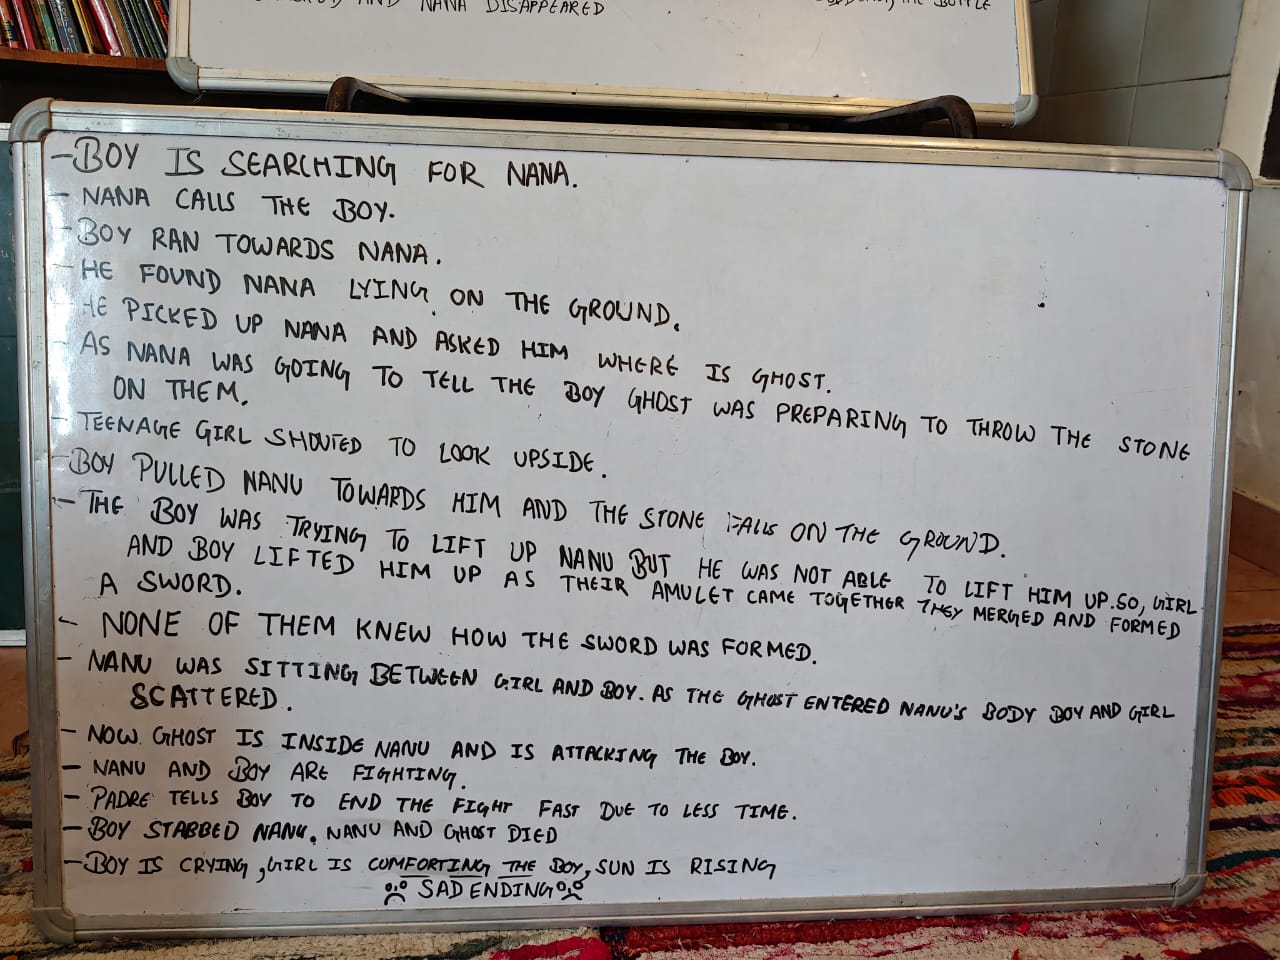 AND NANA DISAPPEARED
THE BOTTLE
- BOY IS SEARCHING FOR NANA.
- NANA CALLS THE BOY.
- BOY RAN TOWARDS NANA.
- HE FOUND NANA LYING ON THE GROUND.
HE PICKED UP NANA AND ASKED HIM WHERE IS GHOST.
- AS NANA WAS GOING TO TELL THE BOY GHOST WAS PREPARING TO THROW THE STONE
ON THEM.
- TEENAGE GIRL SHOUTED TO LOOK UPSIDE.
- BOY PULLED NANU TOWARDS HIM AND THE STONE FALLS ON THE GROUND.
- THE BOY WAS TRYING TO LIFT UP NANU BUT HE WAS NOT ABLE TO LIFT HIM UP. SO, GIRL
AND BOY LIFTED HIM UP AS THEIR AMULET CAME TOGETHER THEY MERGED AND FORMED
A SWORD.
- NONE OF THEM KNEW HOW THE SWORD WAS FORMED.
- NANU WAS SITTING BETWEEN GIRL AND BOY. AS THE GHOST ENTERED NANU'S BODY BOY AND GIRL
SCATTERED.
- NOW GHOST IS INSIDE NANU AND IS ATTACKING THE BOY.
- NANU AND BOY ARE FIGHTING.
- PADRE TELLS BOY TO END THE FIGHT FAST DUE TO LESS TIME.
- BOY STABBED NANU. NANU AND GHOST DIED
- BOY IS CRYING, GIRL IS COMFORTING THE BOY, SUN IS RISING
SAD ENDING